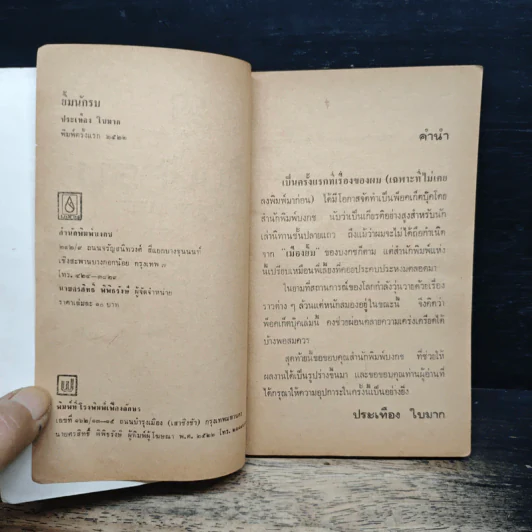 ยิ้มนักรบ
ประเทือง ใบมาก
พิมพ์ครั้งแรก ๒๕๒๖
สำนักพิมพ์บงกช
ถนนจรัญสนิทวงศ์ สี่แยกบางขุนนนท์
เชิงสะพานบางกอกน้อย กรุงเทพ ๗
โทร.
ผู้จัดจำหน่าย
ราคาเล่มละ ๒๐ บาท
พิมพ์ที่โรงพิมพ์เฟื่องอักษร
ถนนบำรุงเมือง (เสาชิงช้า)
ผู้พิมพ์ผู้โฆษณา พ.ศ. ๒๕๒๖ โทร.
คำนำ
เป็นครั้งแรกที่เรื่องของผม (เฉพาะที่ไม่เคย
ลงพิมพ์มาก่อน) ได้มีโอกาสจัดทำเป็นพ็อคเก็ตบุ๊คโดย
สำนักพิมพ์บงกช นับว่าเป็นเกียรติอย่างสูงสำหรับนัก
เล่านิทานชั้นปลายแถว ถึงแม้ว่าผมจะไม่ได้ถือกำเนิด
จาก "เมืองยิ้ม" ของบงกชก็ตาม แต่สำนักพิมพ์แห่ง
นี้เปรียบเหมือนพี่เลี้ยงที่คอยประคบประหงมตลอดมา
ในยามที่สถานการณ์ของโลกกำลังวุ่นวายด้วยเรื่อง
ราวต่าง ๆ ล้วนแต่หนักสมองอยู่ในขณะนี้ จึงคิดว่า
พ็อคเก็ตบุ๊คเล่มนี้ คงช่วยผ่อนคลายความเคร่งเครียดได้
บ้างพอสมควร
สุดท้ายนี้ขอขอบคุณสำนักพิมพ์บงกช ที่ช่วยให้
ผลงานได้เป็นรูปร่างขึ้นมา และขอขอบคุณท่านผู้อ่านที่
ได้กรุณาให้ความอุปการะในครั้งนี้เป็นอย่างยิ่ง
ประเทือง ใบมาก